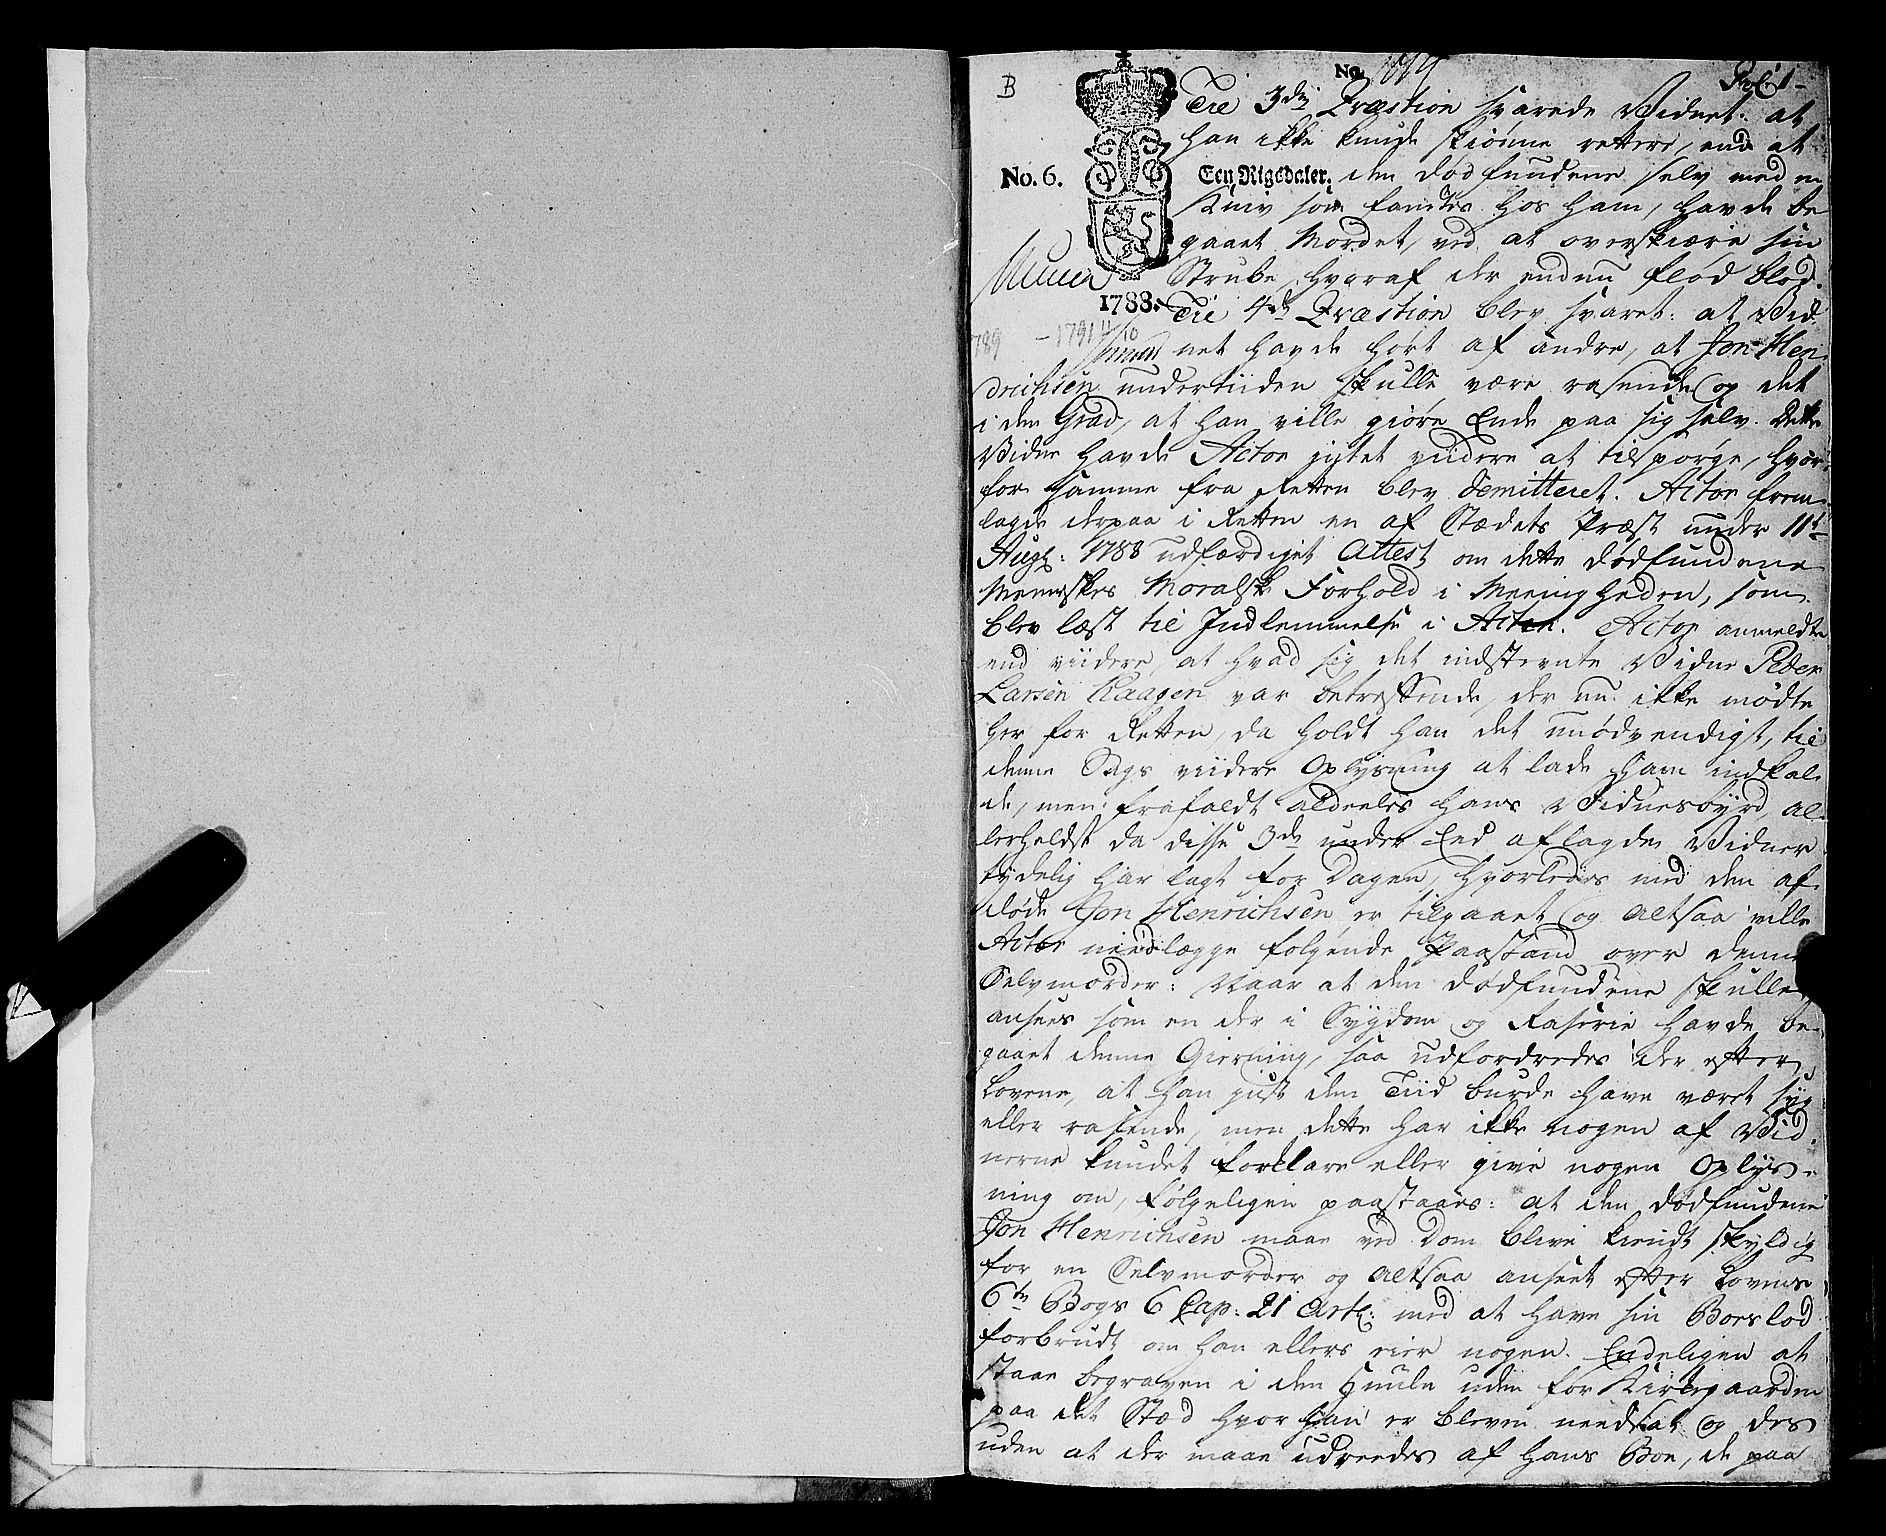 B
No. 1019
Fol: 1
Til 3die Qvæstion svarede Vidnet: at
han ikke kunde skiønne rettere, end at
No. 6. Een Rigsdaler. den dødfundene selv med en
Kniv som fandtes hos ham, havde be
gaaet Mordet, ved at overskiære sin
Strube, hvoraf der endnu flød blod.
1788. Til 4de Qvæstion blev svaret: at Vid
789 - 1791
net havde hørt af andre, at Jon Hen
drichsen undertiiden skulle være rasende og det
i den Grad, at han ville giøre Ende paa sig selv. Dette
Vidne havde Actor intet viidere at tilspørge, hvor
for samme fra Retten blev demitteret. Actor frem
lagde derpaa i Retten en af Stædets Præst under 11te
Aug: 1788 udfærdiget Attest om dette dødfundene
Menneskes Moralske Forhold i Meenigheden, som
blev læst til Indlemmelse i Acten. Actor anmeldte
end viidere, at hvad sig det indstevnte Vidne Peder
Larsen Kaagen var betreffende, der nu ikke mødte
her for Retten, da holdt han det unødvendigt, til
denne Sags viidere Oplysning at lade ham indkal
de, men frafaldt aldeeles hans Vidnesbyrd, al
lerheldst da disse 3de under Eed aflagde Vidner
tydelig har lagt for Dagen, hvorledes med den af
døde Jon Henrichsen er tilgaaet og altsaa ville
Actor needlægge følgende Paastand over denne
Selvmorder: Naar at den dødfundene skulle
ansees som en der i Sygdom og Raserie havde be
gaaet denne Gierning, saa udfordredes der efter
Lovene, at han just den Tiid burde have været syg
eller rasende, men dette har ikke nogen af Vid
nerne kundet forklare eller give nogen Oplys
ning om, følgeligen paastaaes: at den dødfundene
Jon Henrichsen maae ved Dom blive kiendt skyldig
for en Selvmorder og altsaa anseet efter Lovens
6te Bogs 6 Cap: 21 Art: med at have sin Boeslod
forbrudt om han ellers eier nogen. Endeligen at
staae begraven i den Huule uden for Kirkegaarden
paa det Stæd hvor han er bleven needsat og des
uden at der maae udreedes af hans Boe, de paa